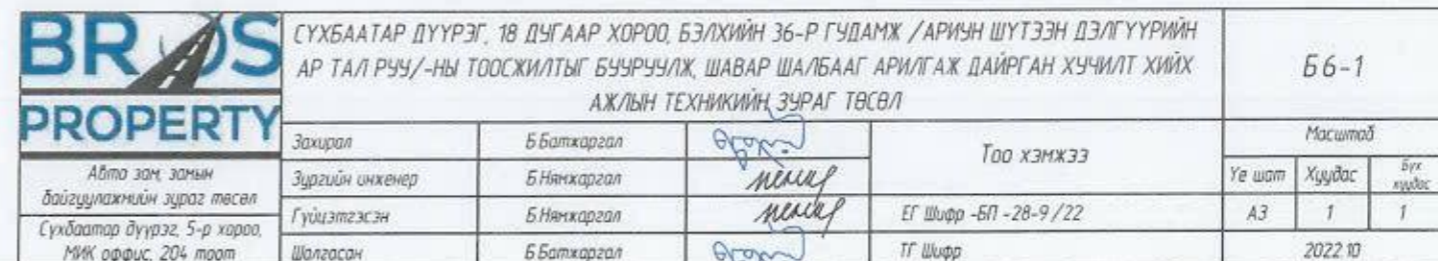 BROS
PROPERTY
Авто зам, замын
байгууламжийн зураг төсөл
Сүхбаатар дүүрэг, 5-р хороо,
МИК оффис, 204 тоот
СҮХБААТАР ДҮҮРЭГ, 18 ДУГААР ХОРОО, БЭЛХИЙН 36-Р ГУДАМЖ /АРИУН ШҮТЭЭН ДЭЛГҮҮРИЙН
АР ТАЛ РУУ/-НЫ ТООСЖИЛТЫГ БУУРУУЛЖ, ШАВАР ШАЛБААГ АРИЛГАЖ ДАЙРГАН ХУЧИЛТ ХИЙХ
АЖЛЫН ТЕХНИКИЙН ЗУРАГ ТӨСӨЛ
Б6-1
Захирал Б.Батжаргал
Зургийн инженер Б.Нямжаргал
Гүйцэтгэсэн Б.Нямжаргал
Шалгасан Б.Батжаргал
Тоо хэмжээ
ЕГ Шифр -БП -28-9/22
ТГ Шифр
Масштаб
Үе шат Хуудас Бүх
хуудас
А3 1 1
2022.10